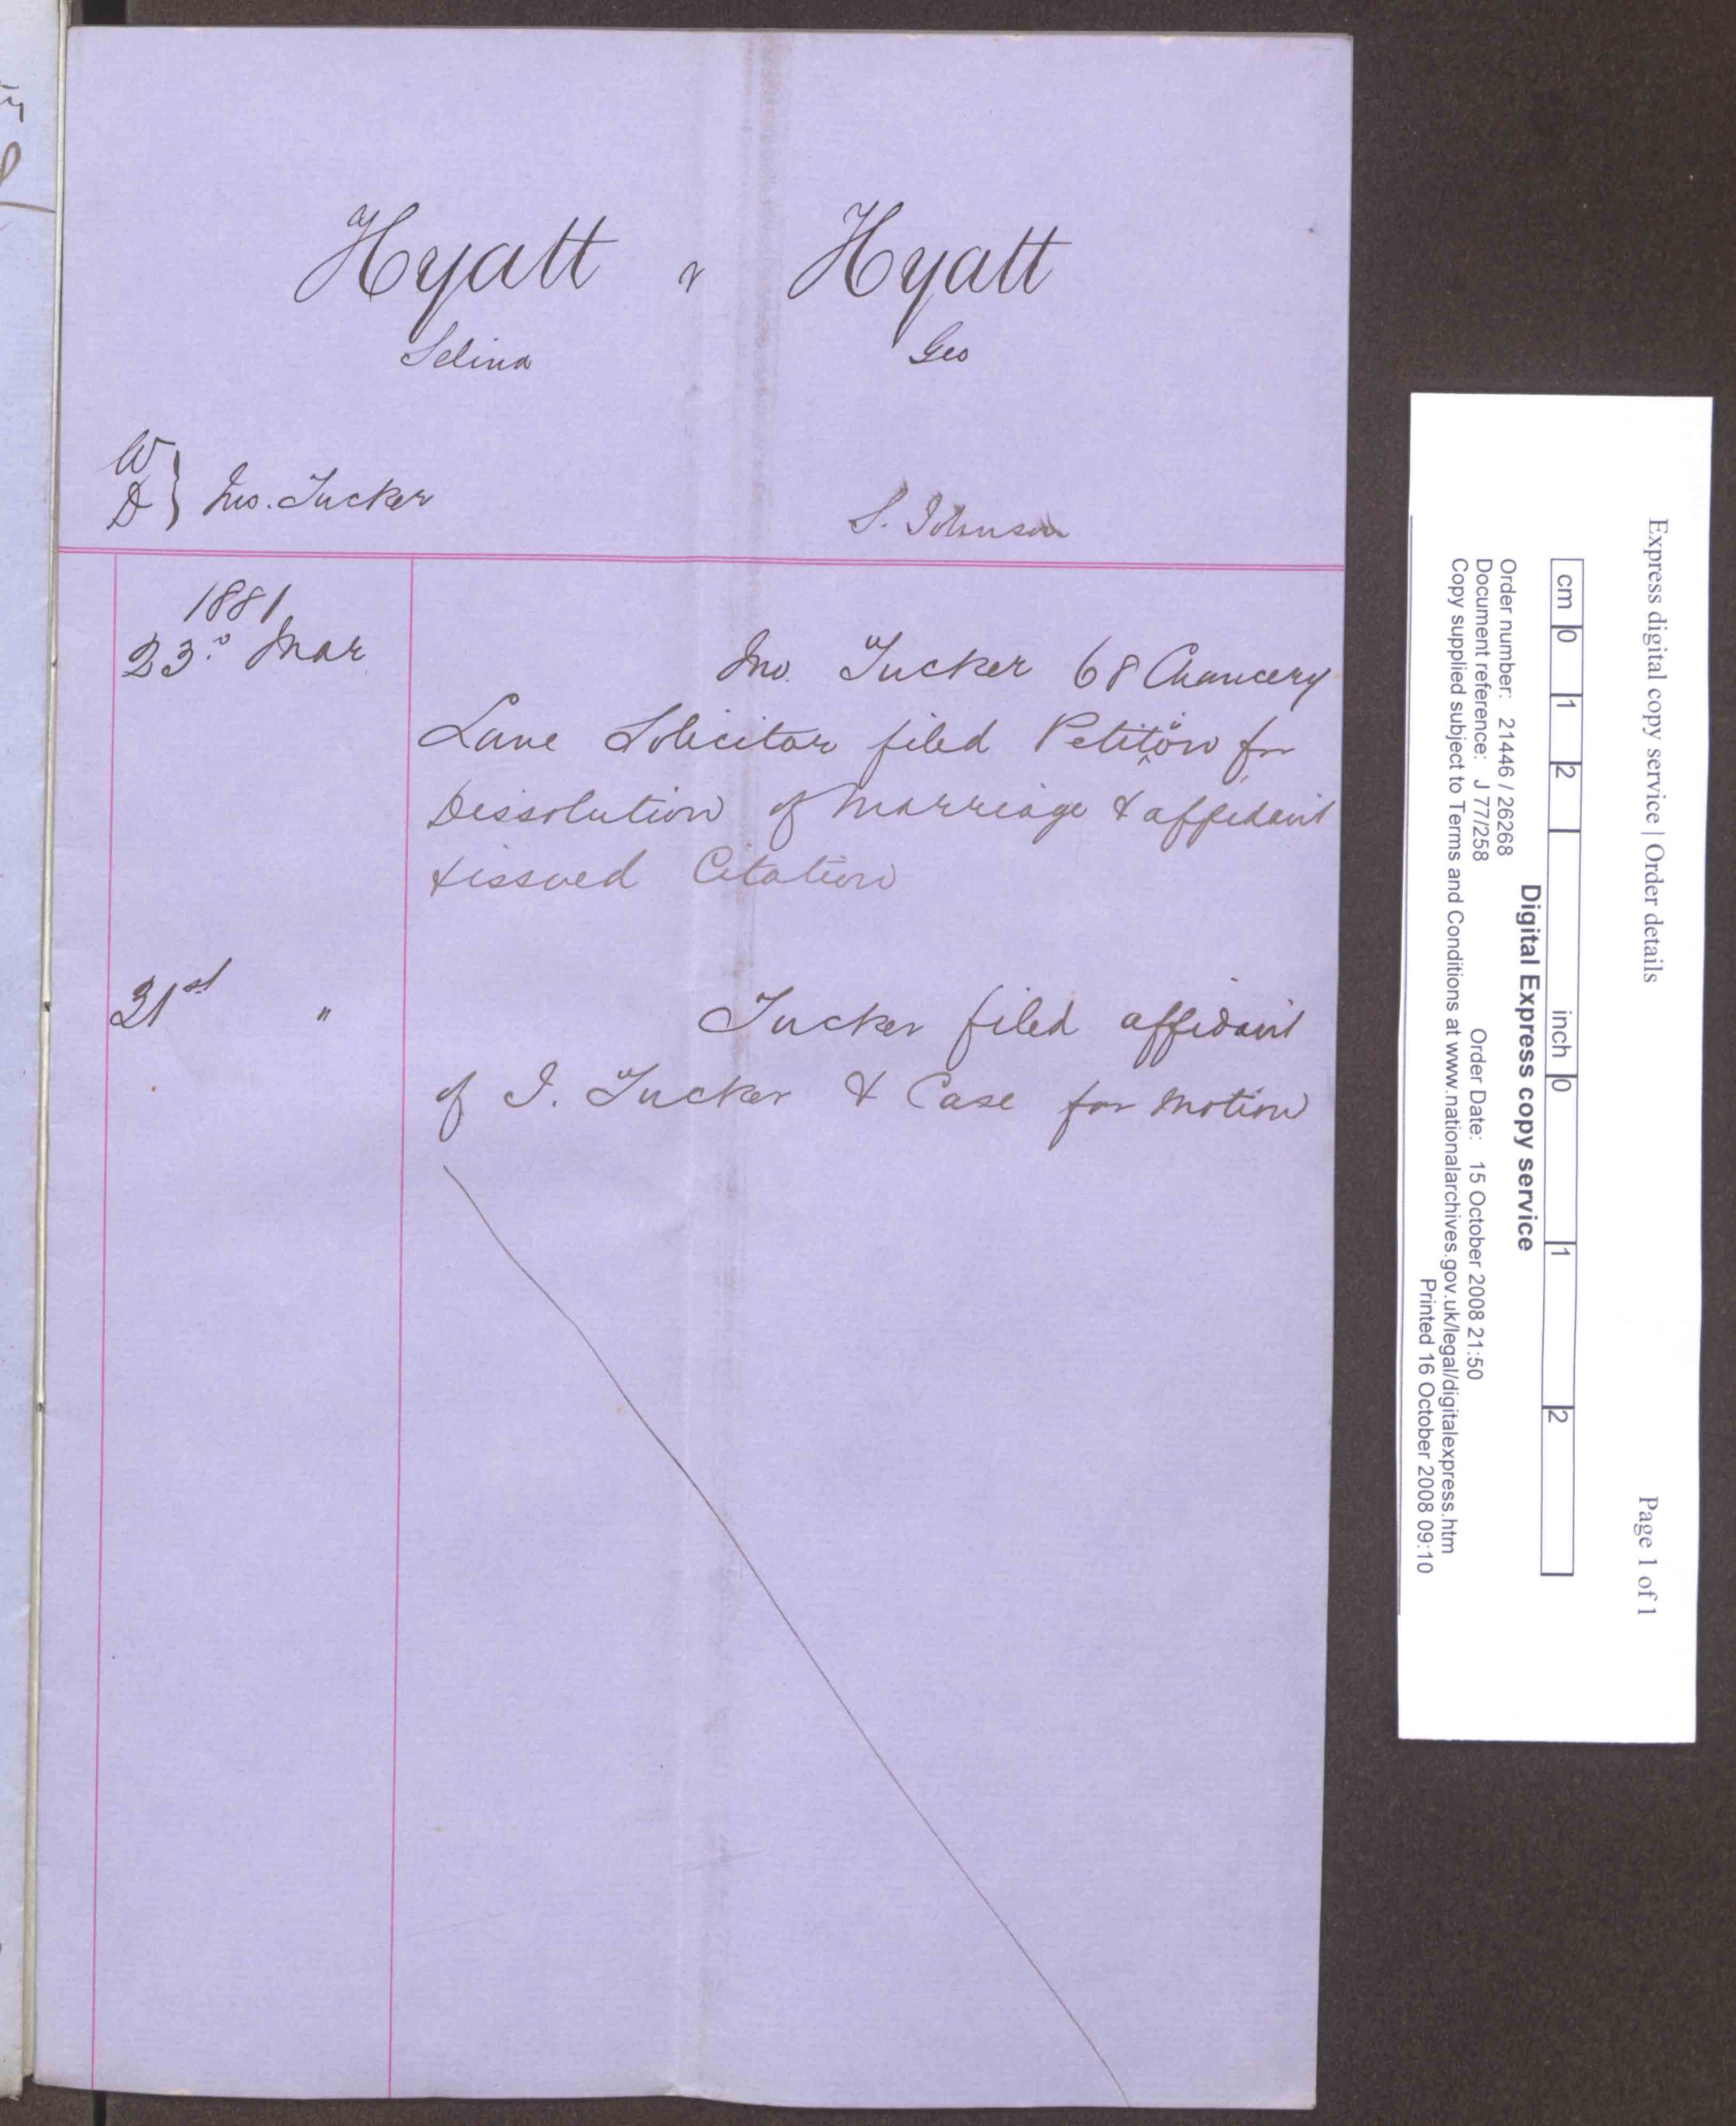 Hyatt v Hyatt
Selina Geo
W
D } Jno. Tucker S. Johnson
1881
23.d Mar
Jno. Tucker 68 Chancery
Lane Solicitor filed Petition for
Dissolution of Marriage & affidavit
& issued Citation
31st "
Tucker filed affidavit
of J. Tucker & Case for Motion
Express digital copy service | Order details Page 1 of 1
cm 0 1 2 inch 0 1 2
Digital Express copy service
Order number: 21446 / 26268
Document reference: J 77/258 Order Date: 15 October 2008 21:50
Copy supplied subject to Terms and Conditions at www.nationalarchives.gov.uk/legal/digitalexpress.htm
Printed 16 October 2008 09:10